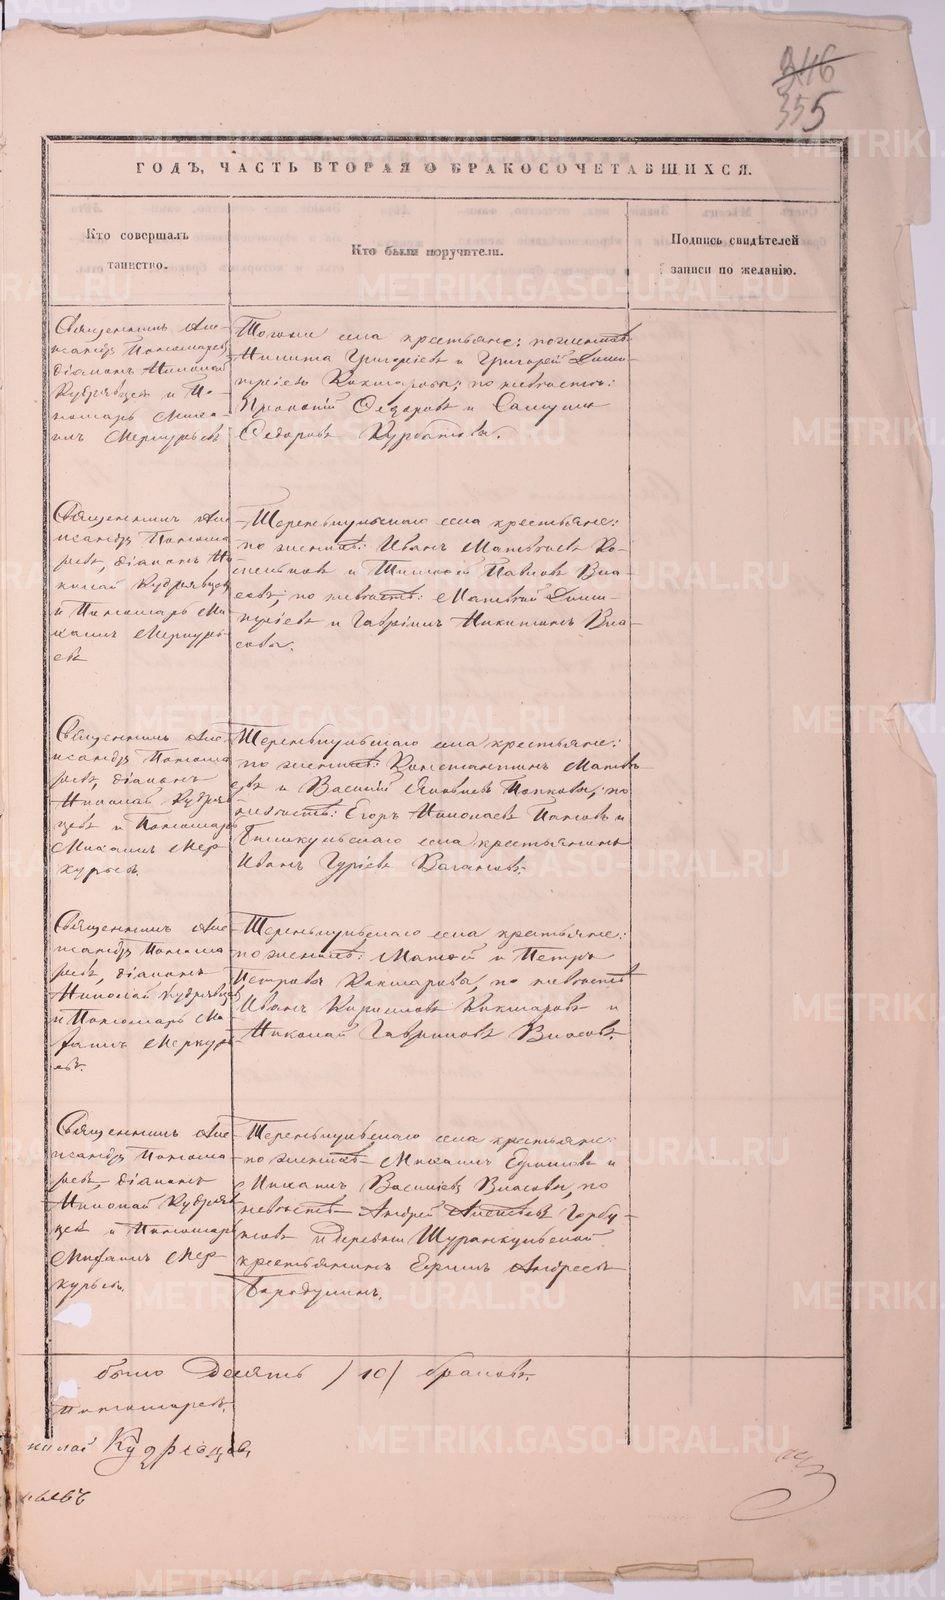 346
355
ГОДЪ, ЧАСТЬ ВТОРАЯ О БРАКОСОЧЕТАВШИХСЯ.
Кто совершалъ таинство.
Кто были поручители.
Подпись свидѣтелей записи по желанію.
Священникъ Але-
ксандръ Пономаревъ,
діаконъ Николай
Кудрявцевъ и По-
номарь Миха-
илъ Меркурьевъ
Тогоже села крестьяне: по женихѣ
Никита Григорьевъ и Григорій Дими-
тріевъ Кокшаровы; по невѣстѣ:
Прокопій Ѳедоровъ и Самуилъ
Ѳедоровъ Курбатовы.
Священникъ Але-
ксандръ Понома-
ревъ, діаконъ Ни-
колай Кудрявцевъ
и Пономарь Ми-
хаилъ Меркурь-
евъ
Теренькульскаго села крестьяне:
по женихѣ: Иванъ Матвѣевъ
и Павловъ Вла-
совъ; по невѣстѣ: Матвѣй Дими-
тріевъ и Гавріилъ Никитинъ Вла-
совы.
Священникъ Але-
ксандръ Понома-
ревъ, діаконъ
Николай Кудряв-
цевъ и Пономарь
Михаилъ Мер-
курьевъ.
Теренькульскаго села крестьяне:
по женихѣ: Константинъ Матвѣ-
евъ и Василій Яковлевъ Поповы; по
невѣстѣ: Егоръ Николаевъ Поповъ и
села крестьянинъ
Иванъ Гурьевъ Вагановъ.
Священникъ Але-
ксандръ Понома-
ревъ, діаконъ
Николай Кудрявцевъ
и Пономарь Ми-
хаилъ Меркурь-
евъ.
Теренькульскаго села крестьяне:
по женихѣ: и Петръ
Петровы Кокшаровы, по невѣстѣ
Иванъ Кириловъ Кокшаровъ и
Николай Гавриловъ Власовъ.
Священникъ Але-
ксандръ Понома-
ревъ, діаконъ
Николай Кудряв-
цевъ и Пономарь
Михаилъ Мер-
курьевъ.
Теренькульскаго села крестьяне:
по женихѣ Михаилъ Ефимовъ и
Михаилъ Васильевъ Власовы, по
невѣстѣ Андрей Алексѣевъ Горбу-
новъ и деревни Шуранкульской
крестьянинъ Ефимъ Андреевъ
Бородулинъ.
было Десять /10/ браковъ.
Пономаревъ.
николай Кудрявцевъ
рьевъ
METRIKI.GASO-URAL.RU